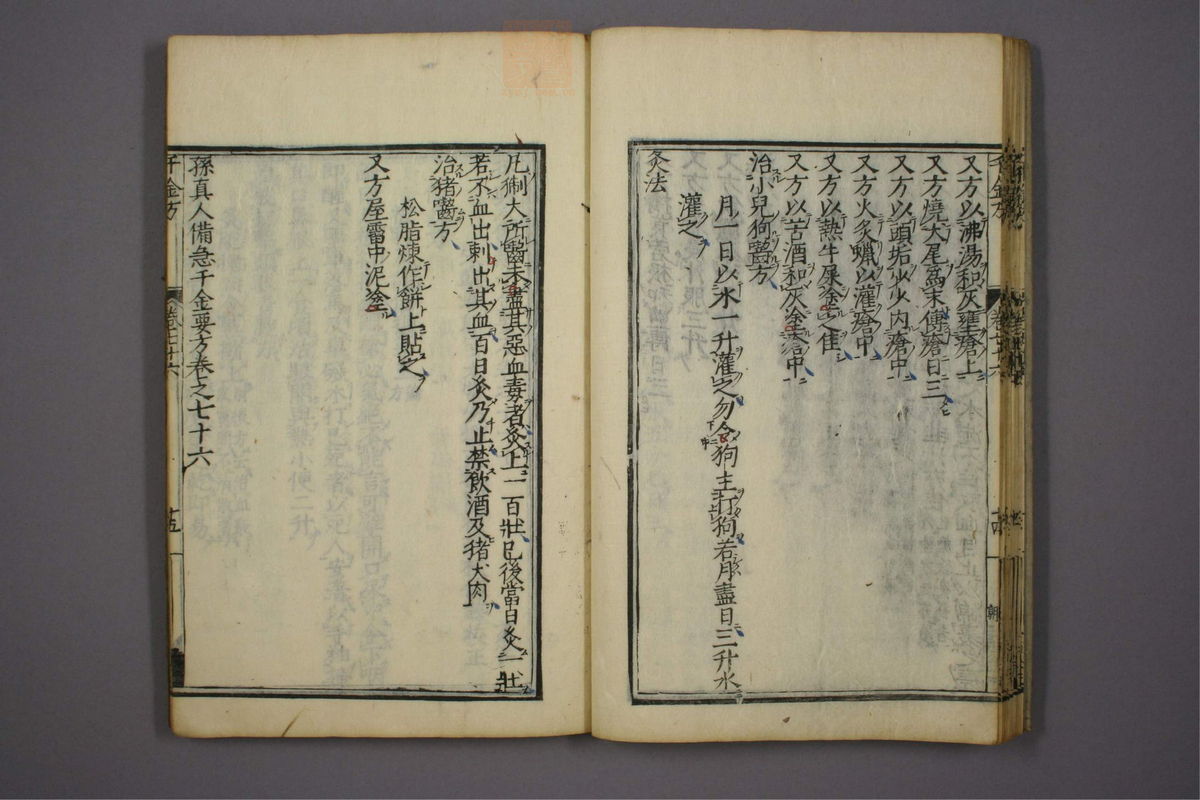 又方以沸湯和灰壅瘡上
又方燒犬尾為末傅瘡日三
又方以頭垢少少内瘡中
又方火炙蠟以灌瘡中
又方以熱牛屎塗之佳
又方以苦酒和灰塗瘡中
治小兒狗齧方
月一日以水一升灌之勿令狗主打狗若月盡日三升水
灌之
灸法
凡猘犬所齧未盡其惡血毒者灸上一百壯已後當日灸一壯
若不血出刺出其血百日灸乃止禁飲酒及猪犬肉
治猪齧方
松脂煉作餅上貼之
又方屋霤中泥塗
孫真人備急千金要方卷之七十六
千金方
十五